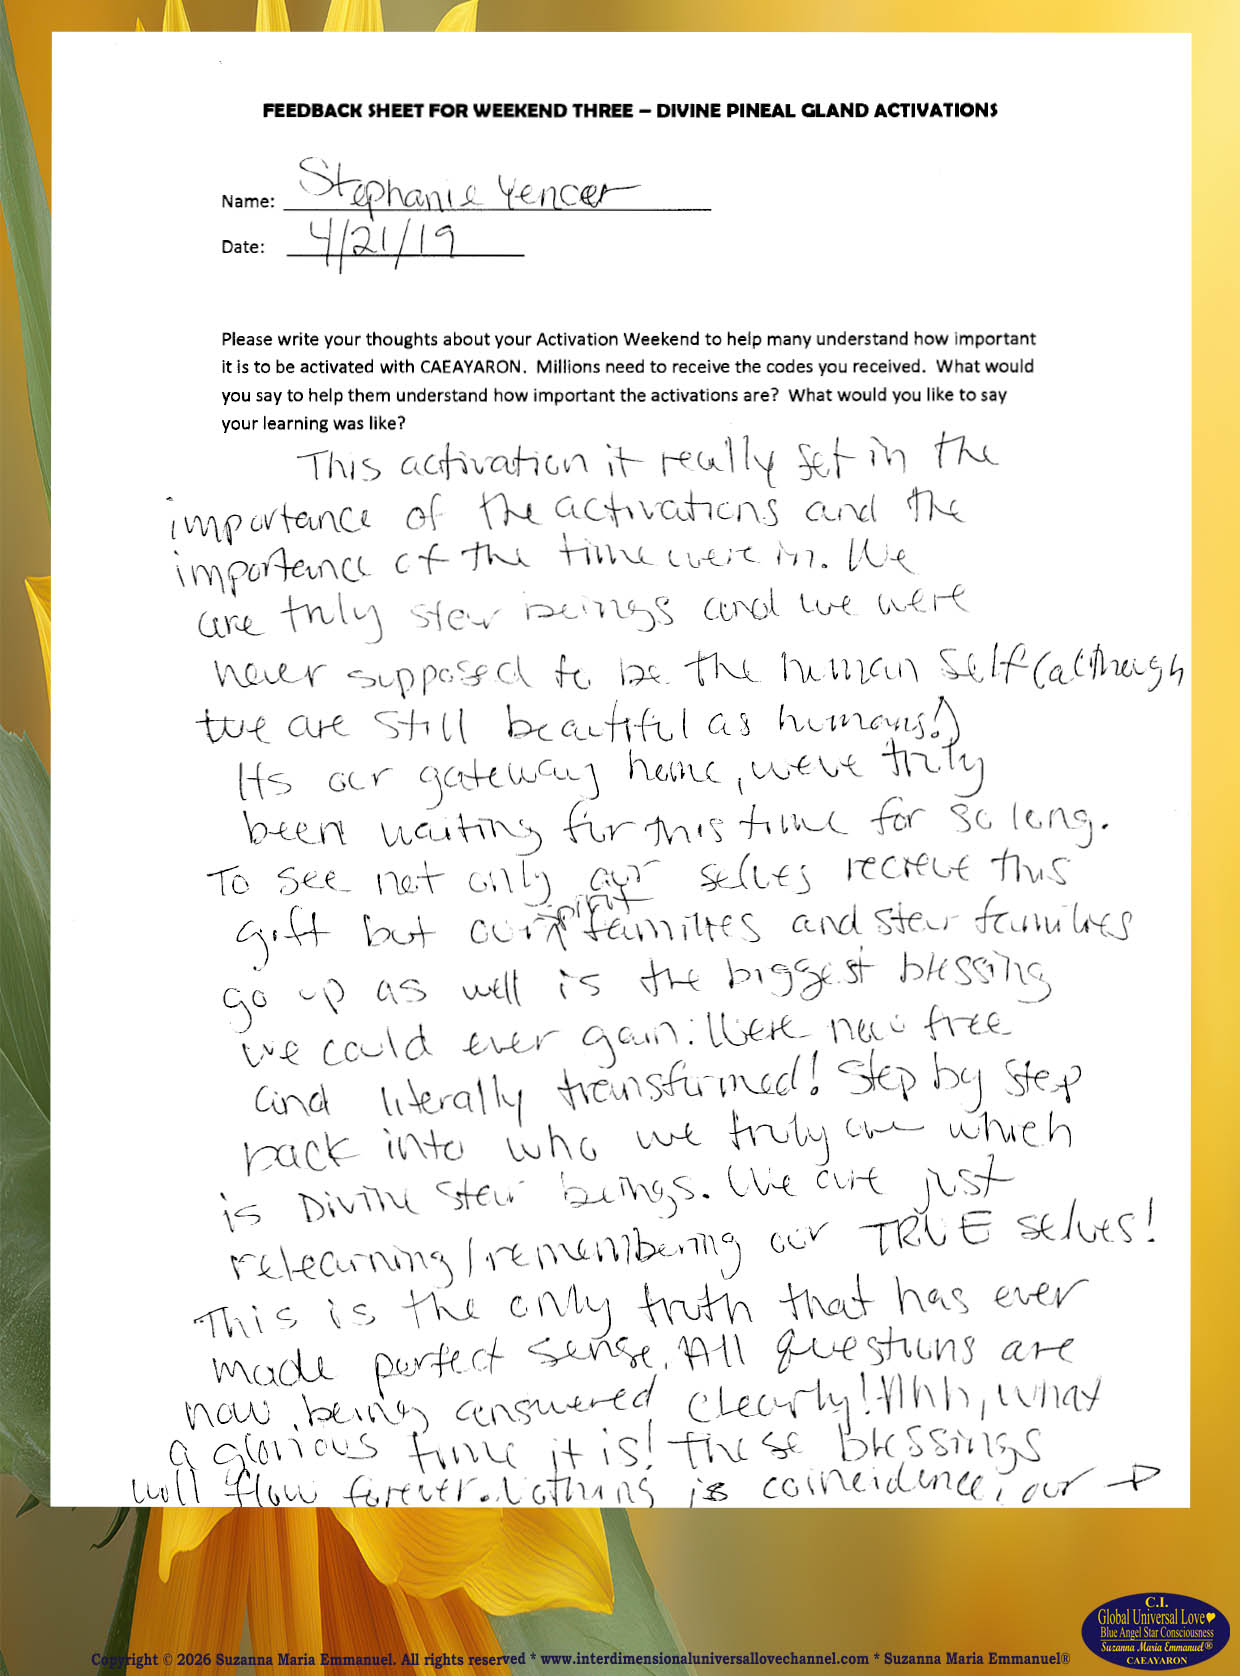 FEEDBACK SHEET FOR WEEKEND THREE – DIVINE PINEAL GLAND ACTIVATIONS
Name: Stephanie Yencer
Date: 4/21/19
Please write your thoughts about your Activation Weekend to help many understand how important
it is to be activated with CAEAYARON. Millions need to receive the codes you received. What would
you say to help them understand how important the activations are? What would you like to say
your learning was like?
This activation it really set in the
importance of the activations and the
importance of the time were in. We
are truly star beings and we were
never supposed to be the human self (although
we are still beautiful as humans!)
Its our gateway home, weve truly
been waiting for this time for so long.
To see not only our selves recieve this
gift but our spirit families and star families
go up as well is the biggest blessing
we could ever gain. Were now free
and literally transformed! Step by step
back into who we truly are which
is Divine Star beings. We are just
relearning/remembering our TRUE selves!
This is the only truth that has ever
made perfect sense. All questions are
now being answered clearly! Ahh, what
a glorious time it is! These blessings
will flow forever. Nothing is coincidence, our →
C.I.
Global Universal Love
Blue Angel Star Consciousness
Suzanna Maria Emmanuel®
CAEAYARON
Copyright © 2026 Suzanna Maria Emmanuel. All rights reserved * www.interdimensionaluniversallovechannel.com * Suzanna Maria Emmanuel®